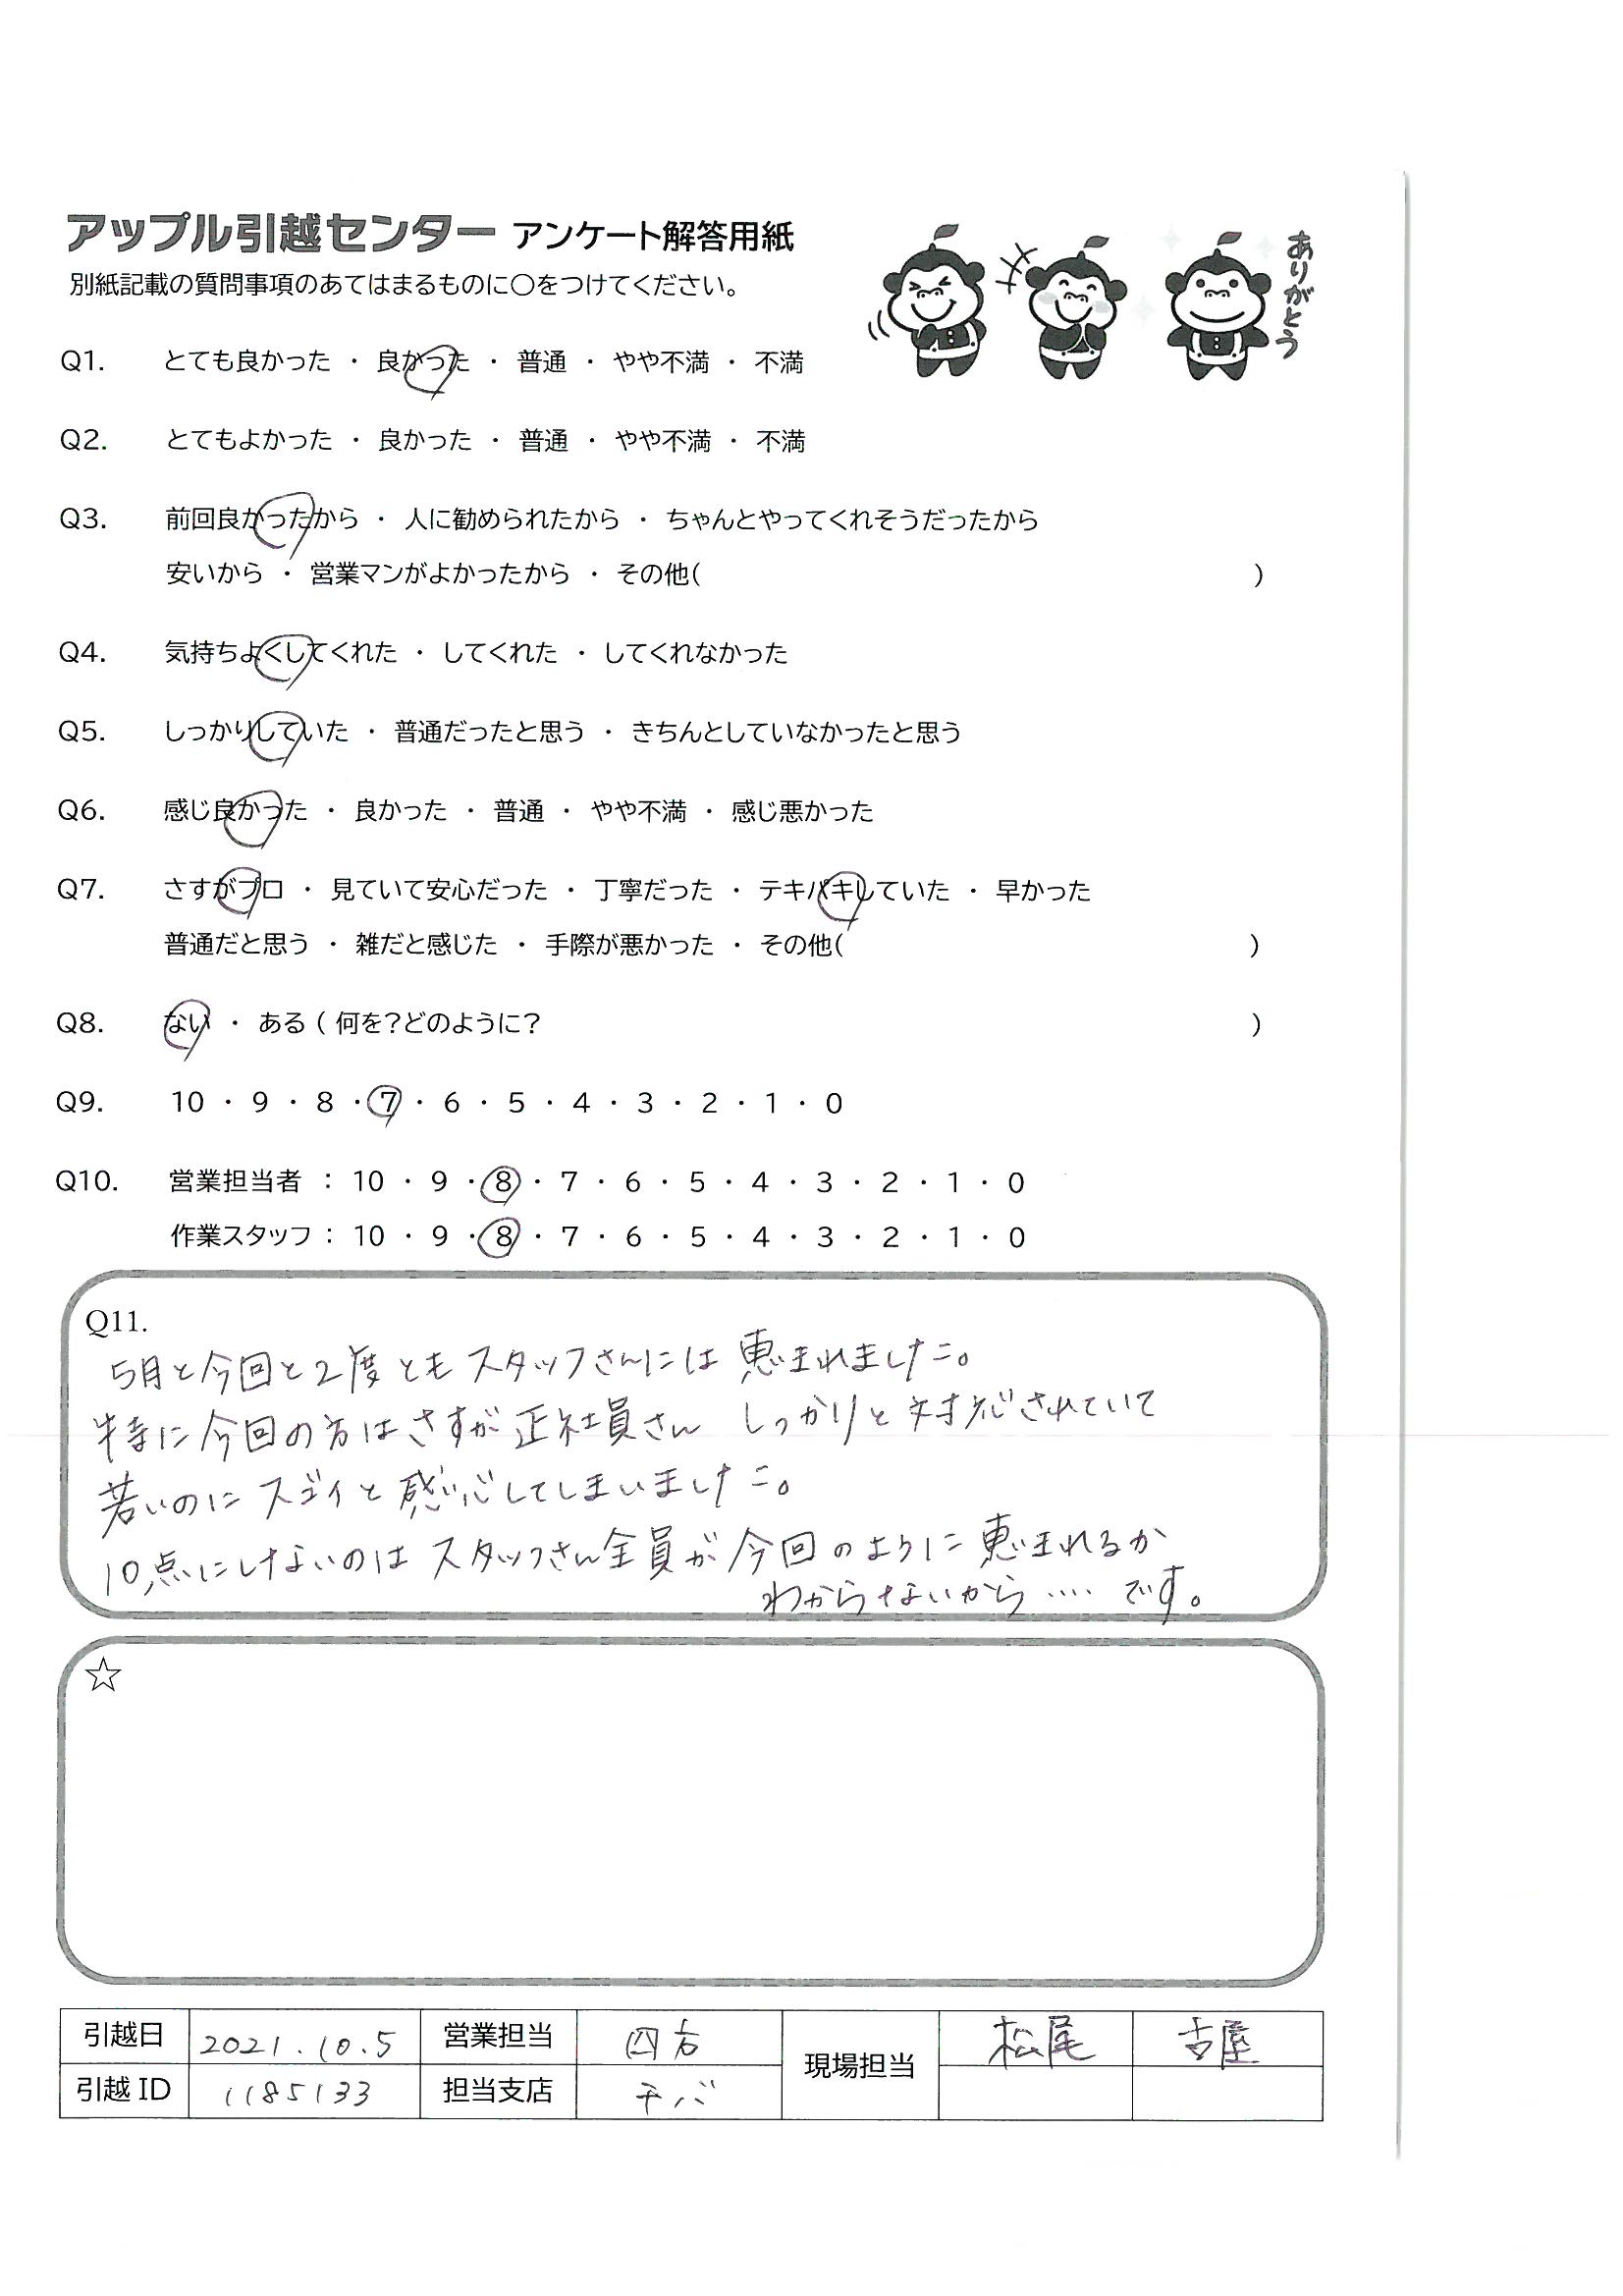 アップル引越センター アンケート解答用紙
別紙記載の質問事項のあてはまるものに○をつけてください。
ありがとう
Q1. とても良かった ・ 良かった ・ 普通 ・ やや不満 ・ 不満
Q2. とてもよかった ・ 良かった ・ 普通 ・ やや不満 ・ 不満
Q3. 前回良かったから ・ 人に勧められたから ・ ちゃんとやってくれそうだったから
安いから ・ 営業マンがよかったから ・ その他( )
Q4. 気持ちよくしてくれた ・ してくれた ・ してくれなかった
Q5. しっかりしていた ・ 普通だったと思う ・ きちんとしていなかったと思う
Q6. 感じ良かった ・ 良かった ・ 普通 ・ やや不満 ・ 感じ悪かった
Q7. さすがプロ ・ 見ていて安心だった ・ 丁寧だった ・ テキパキしていた ・ 早かった
普通だと思う ・ 雑だと感じた ・ 手際が悪かった ・ その他( )
Q8. ない ・ ある ( 何を?どのように? )
Q9. 10 ・ 9 ・ 8 ・ 7 ・ 6 ・ 5 ・ 4 ・ 3 ・ 2 ・ 1 ・ 0
Q10. 営業担当者 : 10 ・ 9 ・ 8 ・ 7 ・ 6 ・ 5 ・ 4 ・ 3 ・ 2 ・ 1 ・ 0
作業スタッフ : 10 ・ 9 ・ 8 ・ 7 ・ 6 ・ 5 ・ 4 ・ 3 ・ 2 ・ 1 ・ 0
Q11.
5月と今回と2度ともスタッフさんには恵まれました。
特に今回の方はさすが正社員さん しっかりと対応されていて
若いのにスゴイと感心してしまいました。
10点にしないのはスタッフさん全員が今回のように恵まれるか
わからないから‥‥です。
☆
引越日 2021.10.5 営業担当 四方 現場担当 松尾 古屋
引越ID 1185133 担当支店 チバ